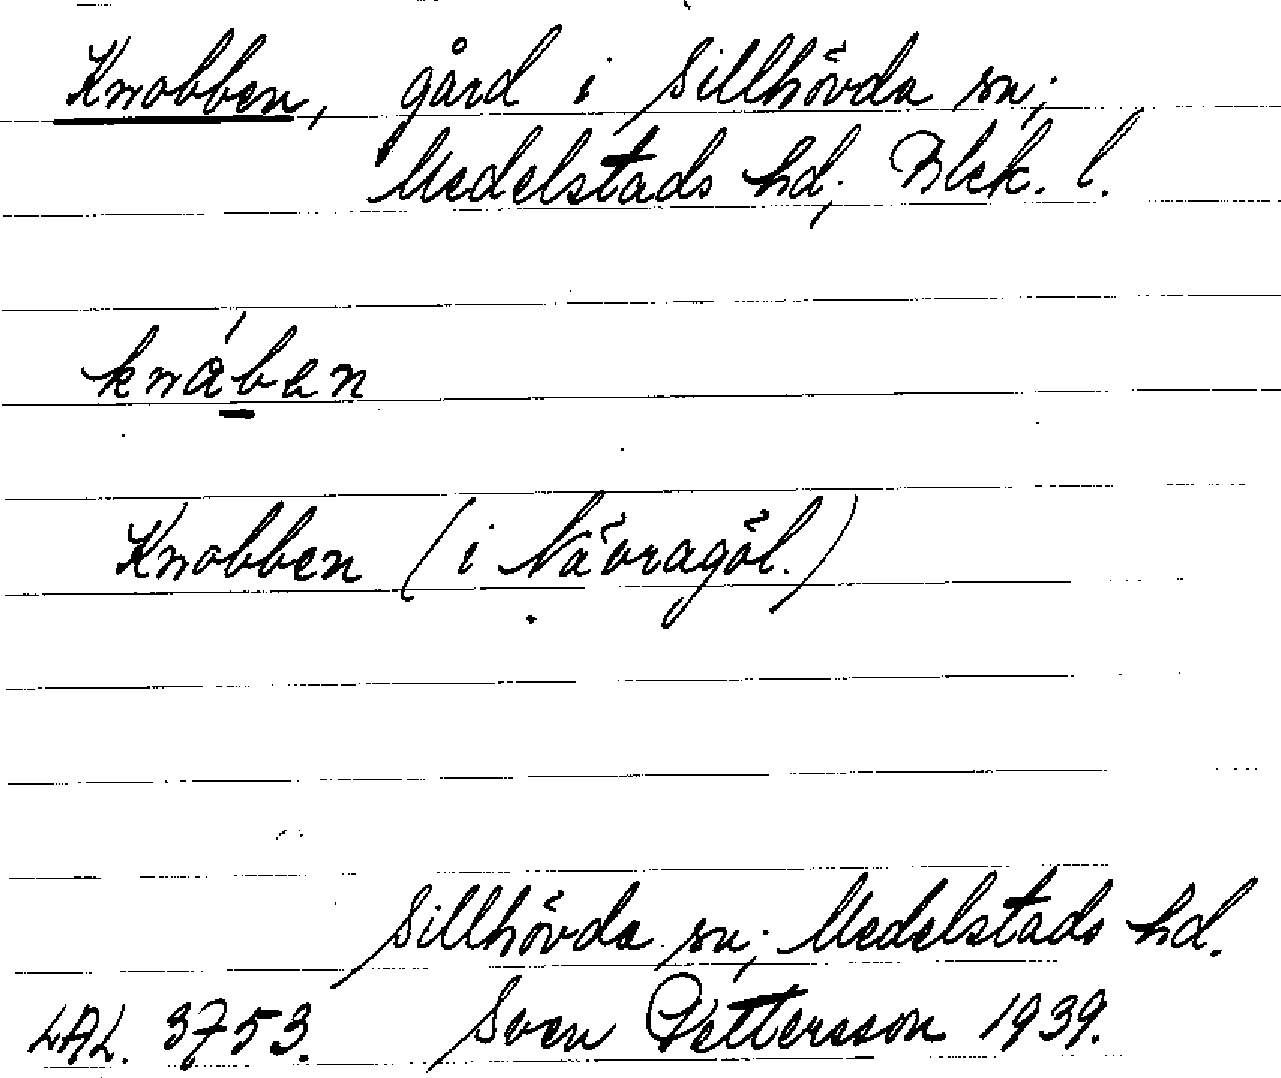 Knobben, gård i Sillhövda sn;
Medelstads hd; Blek. l.
knåb̲en
Knobben (i Nävragöl.)
Sillhövda sn; Medelstads hd.
LAL. 3753. Sven Pettersson 1939.